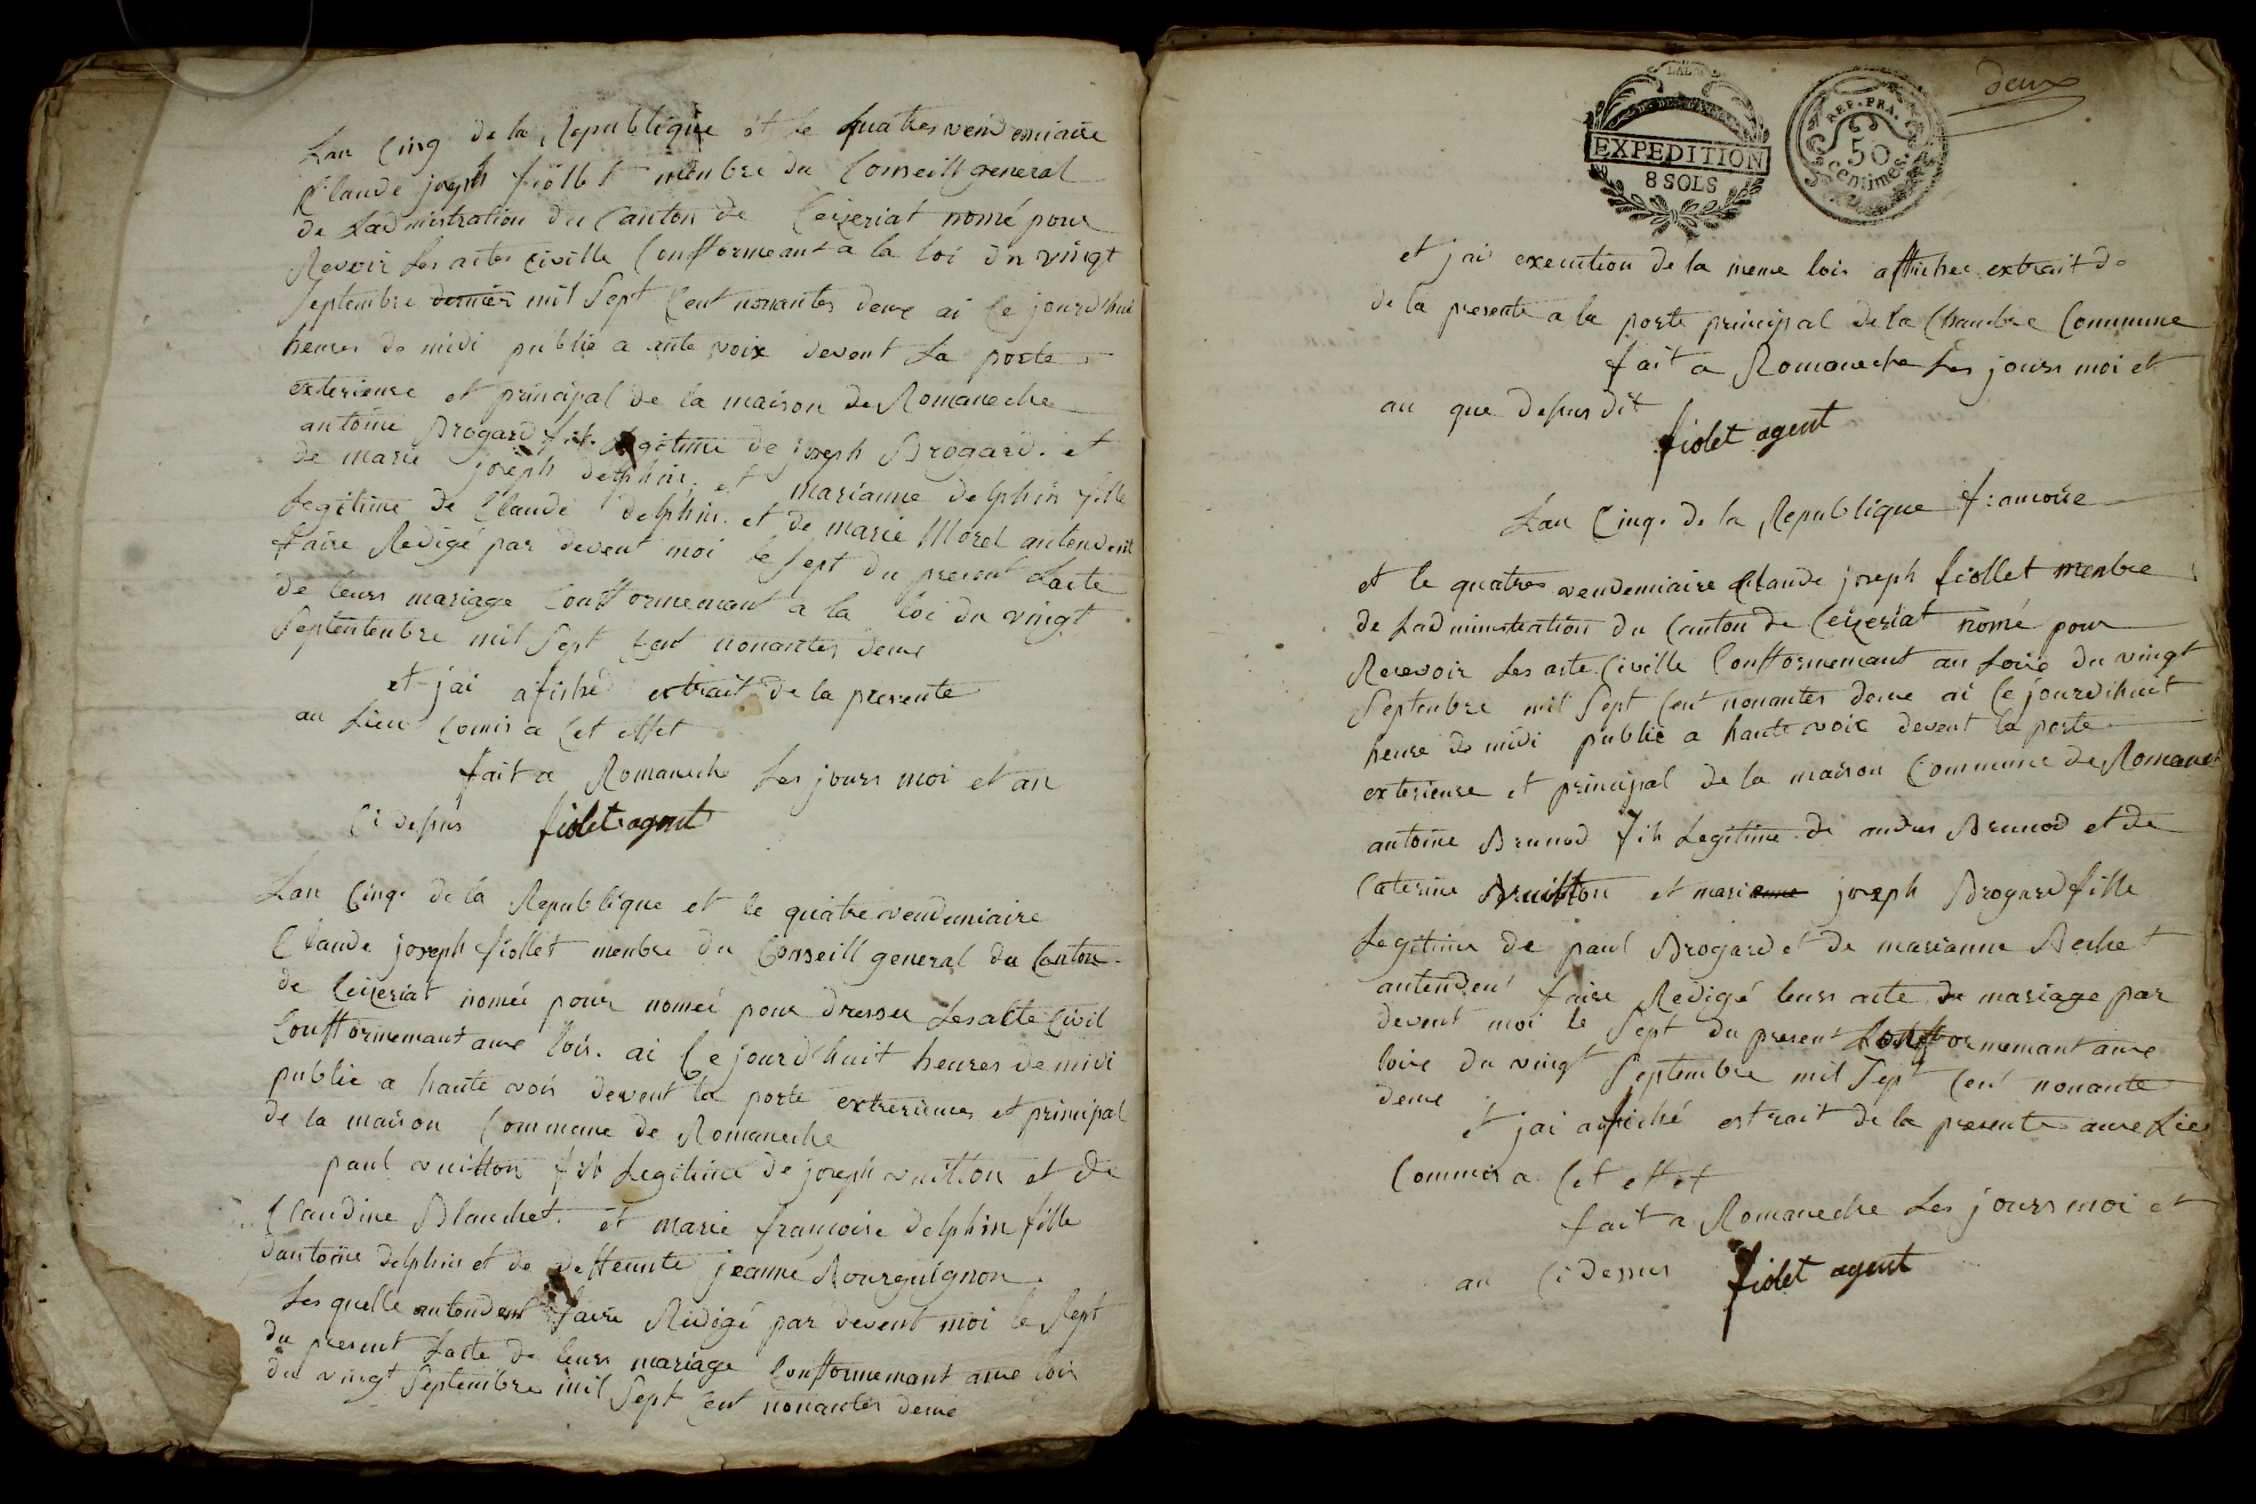 Lan Cinq de la Republique et le quatres vendemiaire
Claude joseph fiollet menbre du Conseill general
de Ladmistration du Canton de Ceizeriat nomé pour
Revoir Les actes civille Confformeant a la loi du vingt
Septembre dernier mil Sept Cent nonantes deux ai Ce jourdhui
heures de midi publié a aute voix devent La porte
exterieure et principal de la maison de Romaneche
antoine Brogard fils Legitime de joseph Brogard. et
de marie joseph delphin. et marianne delphin fille
Legitime de Claude delphin. et de marie Morel antendent
faire Redigé par devent moi le Sept du present Lacte
de leurs mariage Confformemant a la loi du vingt
Septentenbre mil Sept Cent nonantes deux
et jai afiché extrait de la presente
au Lieu Comis a Cet effet
fait a Romaneche Les jours moi et an
Ci desus fiolet agent
Lan Cinq. de la Republique et le quatre vendemiaire
Claude joseph fiollet menbre du Conseill general du Canton
de Ceizeriat nomée pour nomeé pour dresser Les acte Civil
Confformemant aux lois. ai Ce jourdhuit heures de midi
publié a haute vois devent la porte extrerieures et principal
de la maison Commune de Romaneche
paul vuitton fils Legitime de joseph vuitton et de
Claudine Blanchet. et marie françoise delphin fille
dantoine delphin et de deffeunte jeanne Bourguignon
Les quelle antendent faire Redigé par devent moi le Sept
du present Lacte de leurs mariage Confformemant aux lois
du vingt Septembre mil Sept Cent nonantes deux
deux
EXPEDITION
8 SOLS
REP. FRA.
50
Centimes
et jai execution de la meme lois affichee extrait de
de la presente a la porte principal de la Chambre Commune
fait a Romaneche Les jours moi et
an que desus dit
fiolet agent
Lan Cinq. de la Republique francoise
et le quatres vendemiaire Claude joseph fiollet menbre
de Ladministration du Canton de Ceizeriat nomé pour
Recevoir Les acte Civille Confformemant au Loix du vingt
Septenbre mil Sept Cent nonantes deux ai Ce jourdihuit
heure de midi publié a haute voix devent la porte
exterieure et principal de la maison Commune de Romanech
antoine Brunod fils Legitime de andres Brunod et de
Caterine vuitton et marienne joseph Brogard fille
Legitime de paul Brogard et de marianne Bechet
antendent faire Redigé leurs acte de mariage par
devent moi le Sept du present Confformemant aux
loix du vingt Septembre mil Sept Cent nonante
deux
et jai afiché extrait de la presente aux Lieu
Commis a Cet effet
fait a Romaneche Les jours moi et
an Ci dessus fiolet agent